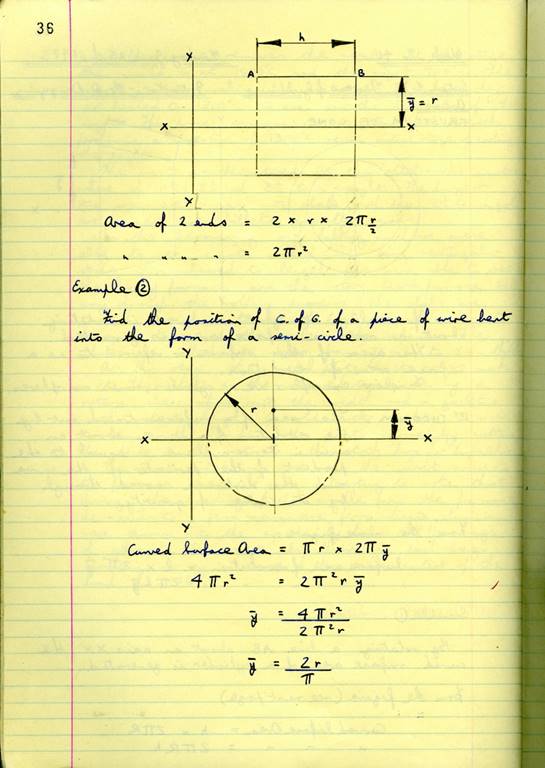 36
h
Y
A B
ȳ = r
X X
Y
Area of 2 ends = 2 × r × 2π r/2
" " " " = 2πr²
Example ②
Find the position of C. of G. of a piece of wire bent
into the form of a semi-circle.
Y
r
ȳ
X X
Y
Curved Surface Area = πr × 2πȳ
4πr² = 2π²rȳ
ȳ = 4πr²/2π²r
ȳ = 2r/π